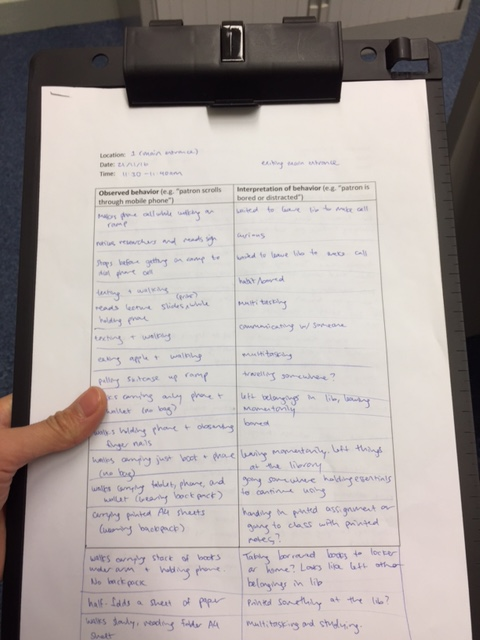 Location: 1 (main entrance)
exiting main entrance
Date: 21/11/16
Time: 11:30 - 11:40am
Observed behavior (e.g. "patron scrolls through mobile phone")
Interpretation of behavior (e.g. "patron is bored or distracted")
Makes phone call while walking on ramp
waited to leave lib to make call
notices researchers and reads sign
curious
stops before getting on ramp to dial phone call
waited to leave lib to make call
texting + walking
habit/bored
reads lecture slides, while holding phone
(print?)
multitasking
texting + walking
communicating w/ someone
eating apple + walking
multitasking
pulling suitcase up ramp
travelling somewhere?
carrying only phone + wallet (no bag)
left belongings in lib, leaving momentarily
walks holding phone + observing finger nails
bored
walks carrying just book + phone (no bag)
leaving momentarily, left things at the library
walks carrying tablet, phone, and wallet (wearing backpack)
going somewhere holding essentials to continue using
carrying printed A4 sheets (wearing backpack)
handing in printed assignment or going to class with printed notes?
walks carrying stack of books under arm + holding phone. No backpack
Taking borrowed books to locker or home? Looks like left other belongings in lib
half-folds a sheet of paper
Printed something at the lib?
walks slowly, reading folded A4 sheet
Multitasking and studying.